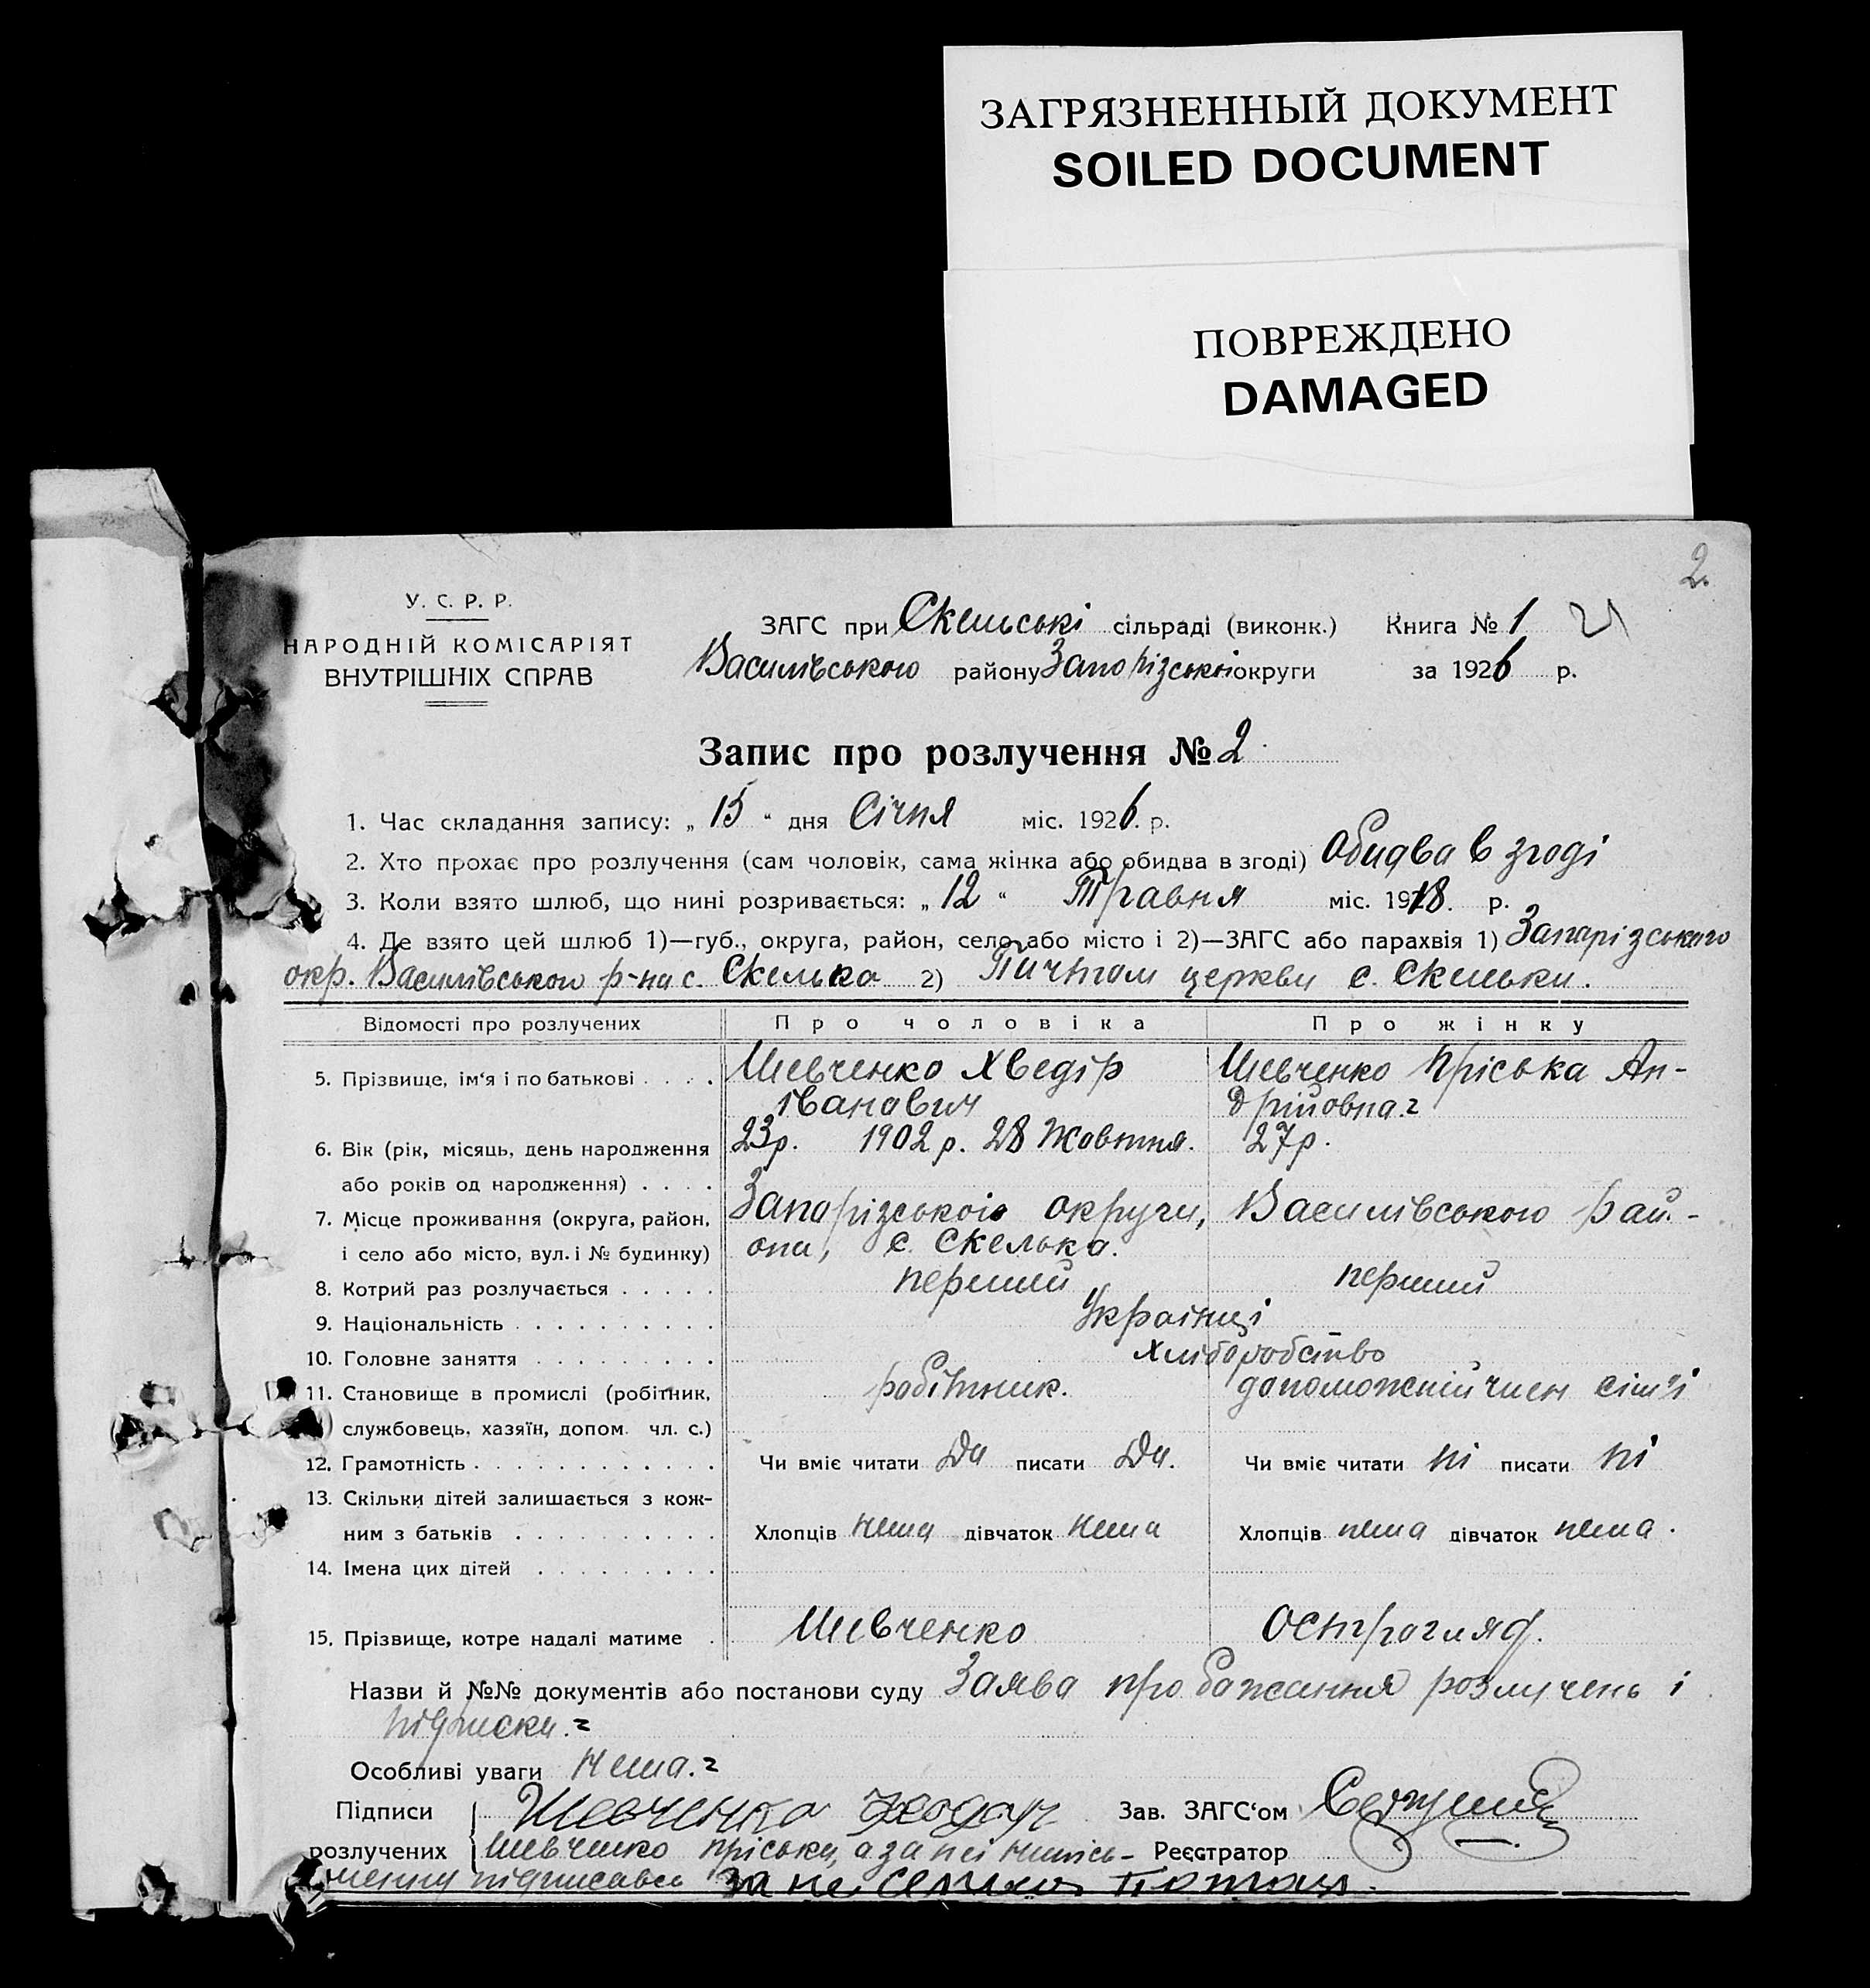 ЗАГРЯЗНЕННЫЙ ДОКУМЕНТ
SOILED DOCUMENT
ПОВРЕЖДЕНО
DAMAGED
2.
У. С. Р. Р.
НАРОДНІЙ КОМІСАРІЯТ
ВНУТРІШНІХ СПРАВ
ЗАГС при Скельські сільраді (виконк.) Книга № 1 21
Василівського району Запорізської округи за 1926 р.
Запис про розлучення № 2
1. Час складання запису: „ 15 “ дня Січня міс. 1926. р.
2. Хто прохає про розлучення (сам чоловік, сама жінка або обидва в згоді) Обидва в згоді
3. Коли взято шлюб, що нині розривається: „ 12 “ Травня міс. 1918. р.
4. Де взято цей шлюб 1)—губ., округа, район, село або місто і 2)—ЗАГС або парахвія 1) Запарізського
окр. Василівського р-на с. Скелька 2) церкви с. Скельки.
Відомості про розлучених Про чоловіка Про жінку
5. Прізвище, ім‘я і по батькові . . . . Шевченко Хведір Шевченко Пріська Ан-
Іванович дрійовна.
6. Вік (рік, місяць, день народження 23р. 1902 р. 28 Жовтня. 27р.
або років од народження) . . . .
7. Місце проживання (округа, район, Запорізської округи, Василівського рай.-
і село або місто, вул. і № будинку) она, с. Скелька.
8. Котрий раз розлучається . . . . . перший перший
9. Національність . . . . . . . . . . Українці
10. Головне заняття . . . . . . . . . Хліборобство
11. Становище в промислі (робітник, робітник. допоможний член сім'ї
службовець, хазяїн, допом. чл. с.)
12. Грамотність . . . . . . . . . . . . Чи вміє читати Да писати Да. Чи вміє читати ні писати ні
13. Скільки дітей залишається з кож-
ним з батьків . . . . . . . . . . Хлопців нема дівчаток нема Хлопців нема дівчаток нема.
14. Імена цих дітей . . . . . . . . .
15. Прізвище, котре надалі матиме . Шевченко Острогляд.
Назви й №№ документів або постанови суду Заява про бажання розлучень і
підписки.
Особливі уваги Нема.
Підписи Шевченко Зав. ЗАГС‘ом
розлучених Шевченко Пріська, а за неї непись- Реєстратор
менну підписався за не